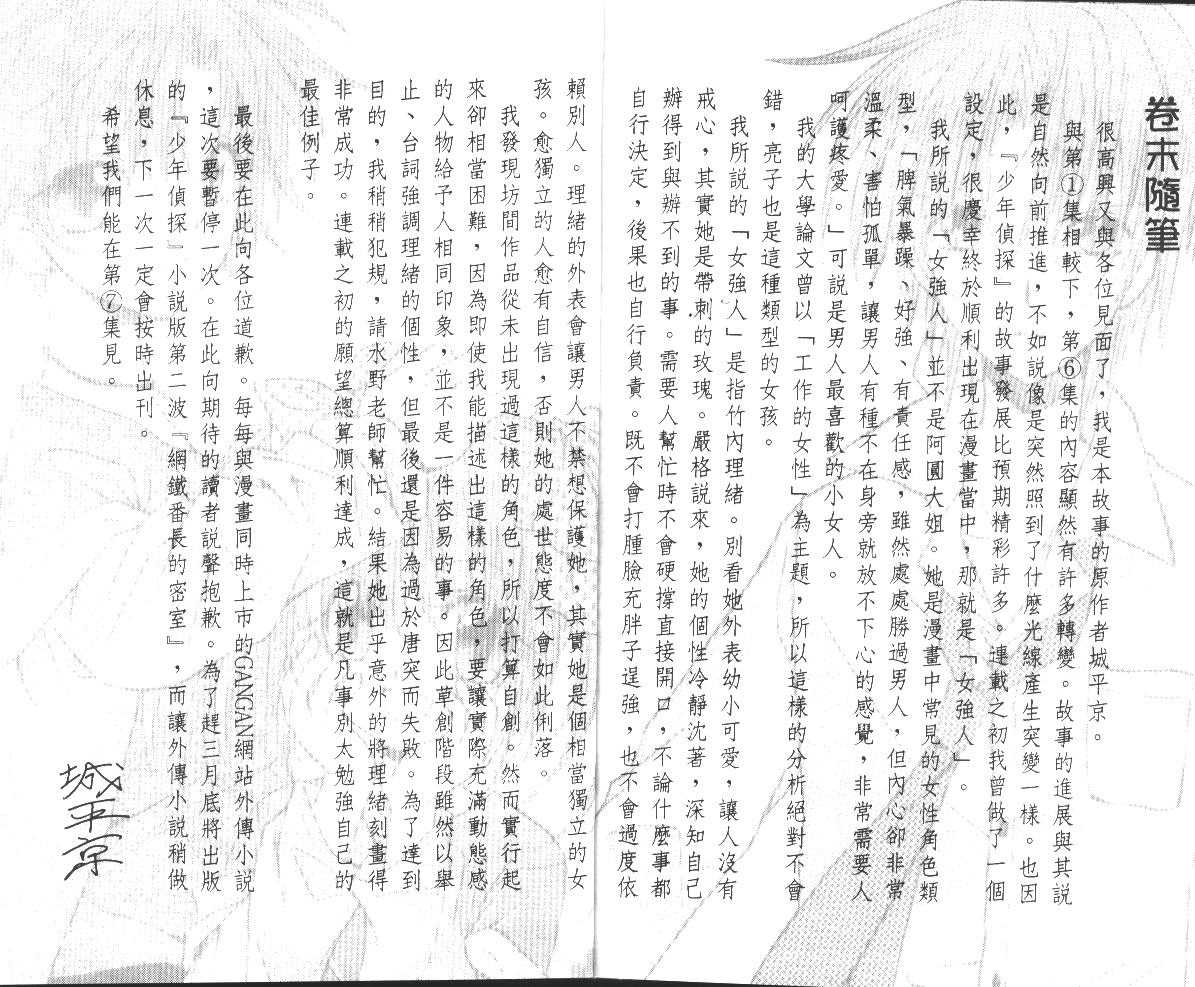 卷末隨筆
很高興又與各位見面了，我是本故事的原作者城平京。
與第①集相較下，第⑥集的內容顯然有許多轉變。故事的進展與其說
是自然向前推進，不如說像是突然照到了什麼光線產生突變一樣。也因
此，『少年偵探』的故事發展比預期精彩許多。連載之初我曾做了一個
設定，很慶幸終於順利出現在漫畫當中，那就是「女強人」。
我所說的「女強人」並不是阿圓大姐。她是漫畫中常見的女性角色類
型，「脾氣暴躁、好強、有責任感，雖然處處勝過男人，但內心卻非常
溫柔、害怕孤單，讓男人有種不在身旁就放不下心的感覺，非常需要人
呵護疼愛。」可說是男人最喜歡的小女人。
我的大學論文曾以「工作的女性」為主題，所以這樣的分析絕對不會
錯，亮子也是這種類型的女孩。
我所說的「女強人」是指竹內理緒。別看她外表幼小可愛，讓人沒有
戒心，其實她是帶刺的玫瑰。嚴格說來，她的個性冷靜沈著，深知自己
辦得到與辦不到的事。需要人幫忙時不會硬撐直接開口，不論什麼事都
自行決定，後果也自行負責。既不會打腫臉充胖子逞強，也不會過度依
賴別人。理緒的外表會讓男人不禁想保護她，其實她是個相當獨立的女
孩。愈獨立的人愈有自信，否則她的處世態度不會如此俐落。
我發現坊間作品從未出現過這樣的角色，所以打算自創。然而實行起
來卻相當困難，因為即使我能描述出這樣的角色，要讓實際充滿動態感
的人物給予人相同印象，並不是一件容易的事。因此草創階段雖然以舉
止、台詞強調理緒的個性，但最後還是因為過於唐突而失敗。為了達到
目的，我稍稍犯規，請水野老師幫忙。結果她出乎意外的將理緒刻畫得
非常成功。連載之初的願望總算順利達成，這就是凡事別太勉強自己的
最佳例子。
最後要在此向各位道歉。每每與漫畫同時上市的GANGAN網站外傳小說
，這次要暫停一次。在此向期待的讀者說聲抱歉。為了趕三月底將出版
的『少年偵探』小說版第二波『網鐵番長的密室』，而讓外傳小說稍做
休息，下一次一定會按時出刊。
希望我們能在第⑦集見。
城平京